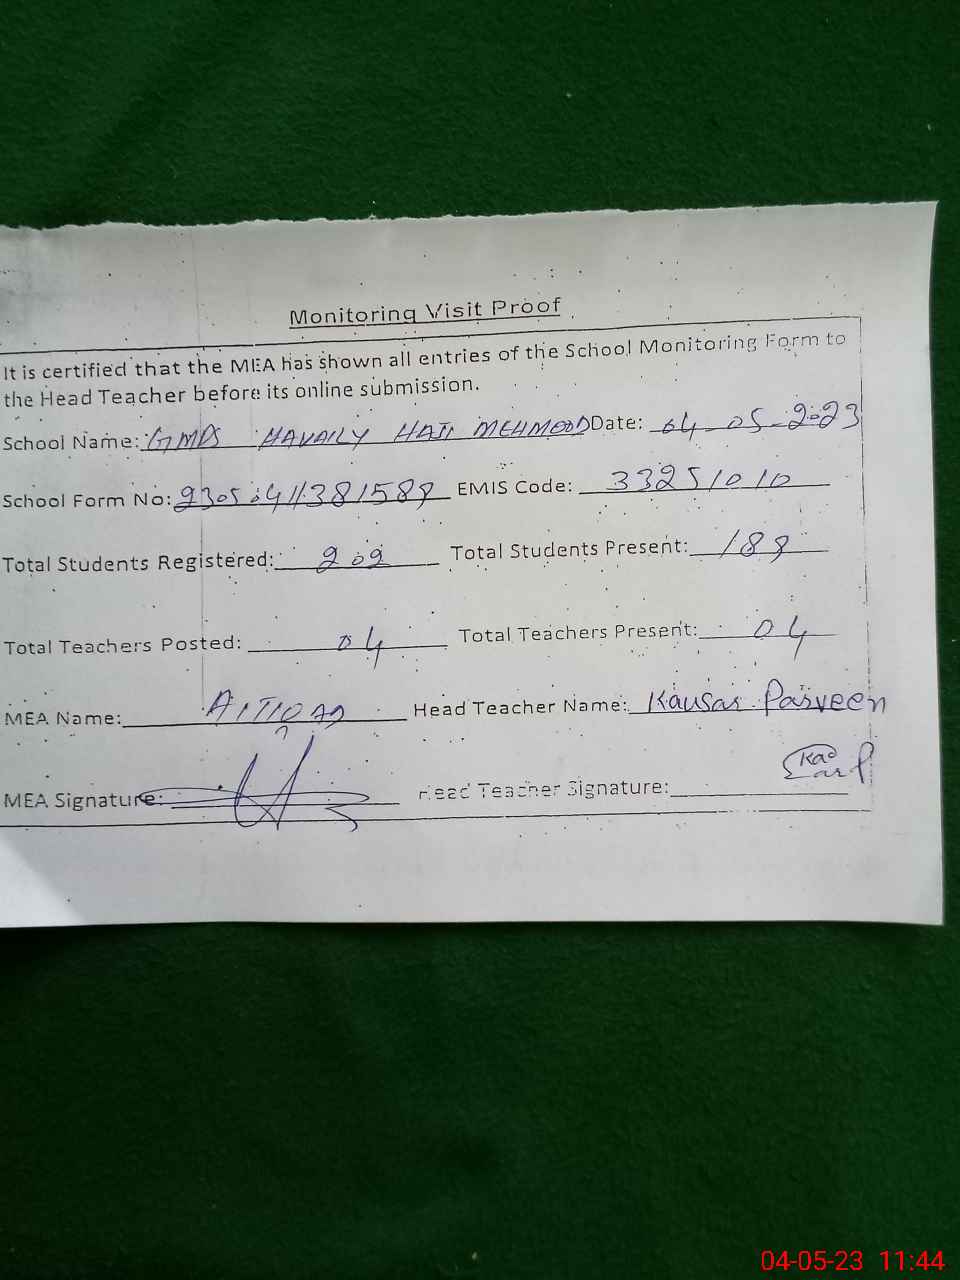 Monitoring Visit Proof
It is certified that the MEA has shown all entries of the School Monitoring Form to
the Head Teacher before its online submission.
School Name: GMPS HAVAILY HAJI MEHMOOD Date: 04-05-2023
School Form No: EMIS Code: 33251010
Total Students Registered: 202 Total Students Present: 188
Total Teachers Posted: 04 Total Teachers Present: 04
MEA Name: Head Teacher Name: Kausar Parveen
MEA Signature: Head Teacher Signature:
04-05-23 11:44